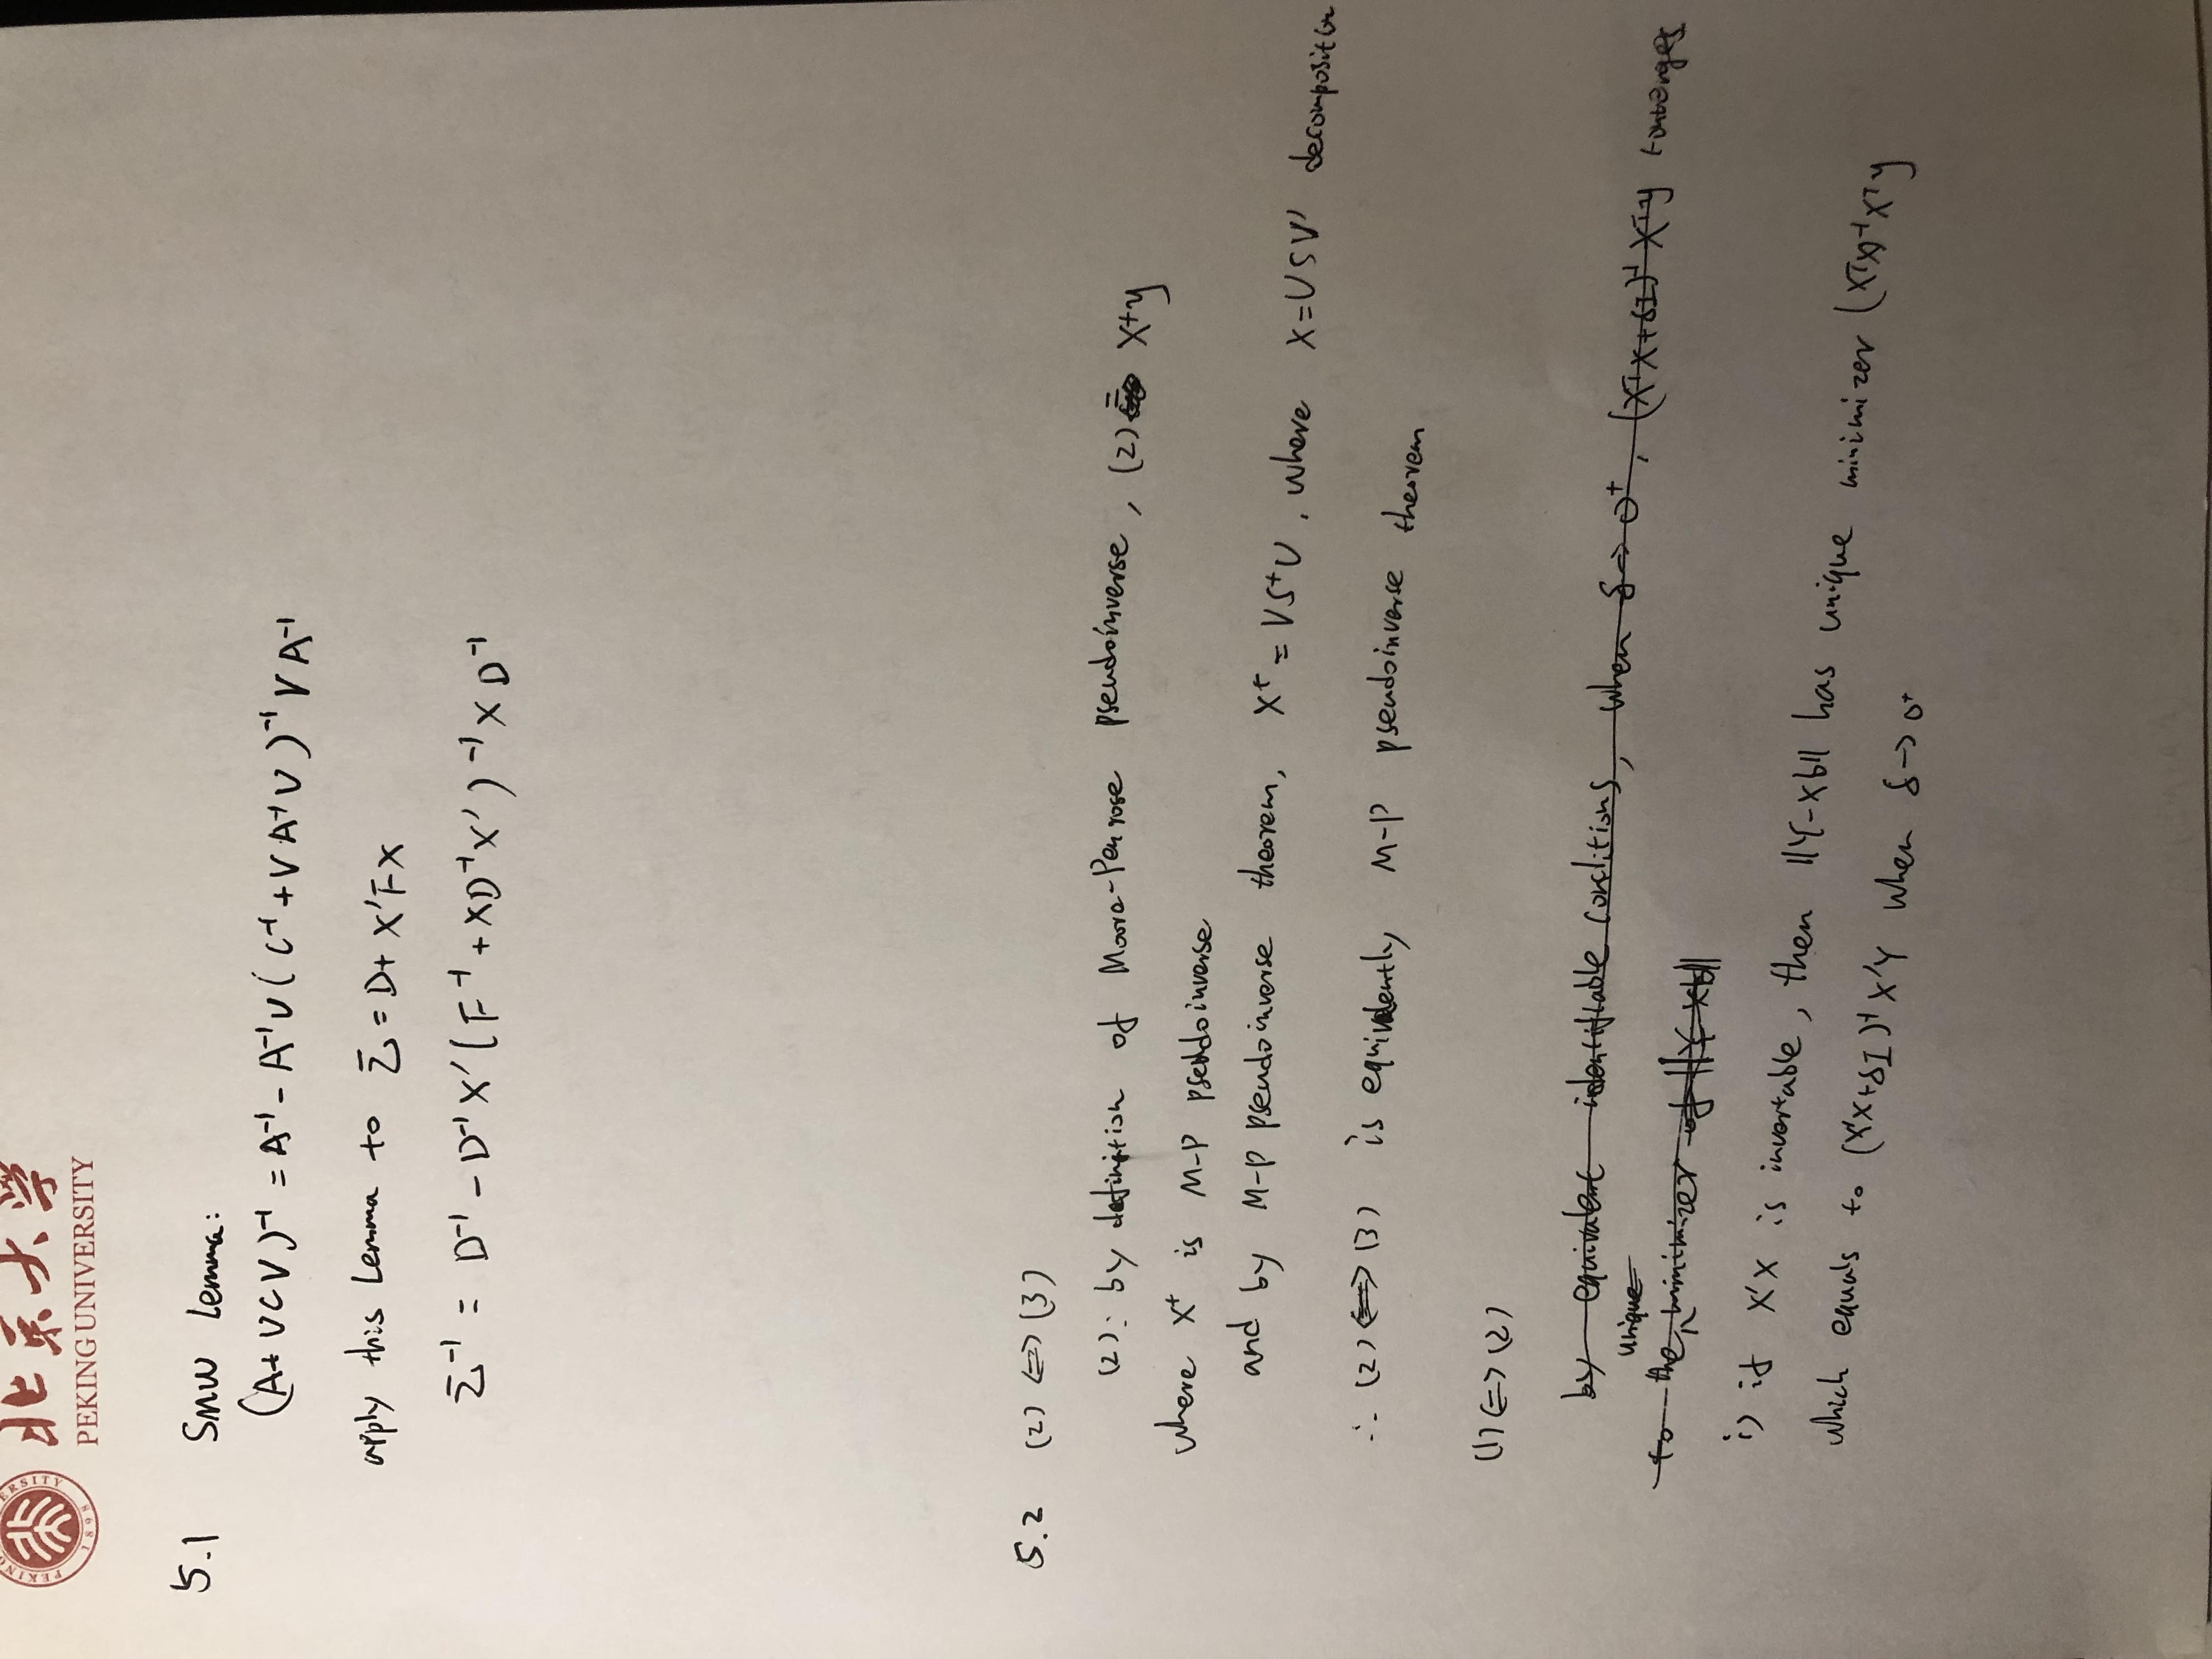 北京大学
PEKING UNIVERSITY
5.1 SMW Lemma:
(A+UCV)⁻¹ = A⁻¹ - A⁻¹U(C⁻¹+VA⁻¹U)⁻¹VA⁻¹
apply this Lemma to Σ = D+X'FX
Σ⁻¹ = D⁻¹ - D⁻¹X'(F⁻¹+XD⁻¹X')⁻¹XD⁻¹
5.2 (2)⇔(3)
(2): by definition of Moore-Penrose pseudoinverse, (2) = X⁺y
where X⁺ is M-P pseudoinverse
and by M-P pseudoinverse theorem, X⁺ = VS⁺U, where X=USV' decomposition
∴ (2)⇔(3) is equivalently M-P pseudoinverse theorem
(1)⇔(2)
by equivalent identifiable conditions, when δ→0⁺, (XᵀX+δI)⁻¹Xᵀy converges
unique
to the minimizer of ||Y-Xb||
i) if X'X is invertable, then ||Y-Xb|| has unique minimizer (XᵀX)⁻¹Xᵀy
which equals to (X'X+δI)⁻¹X'Y when δ→0⁺